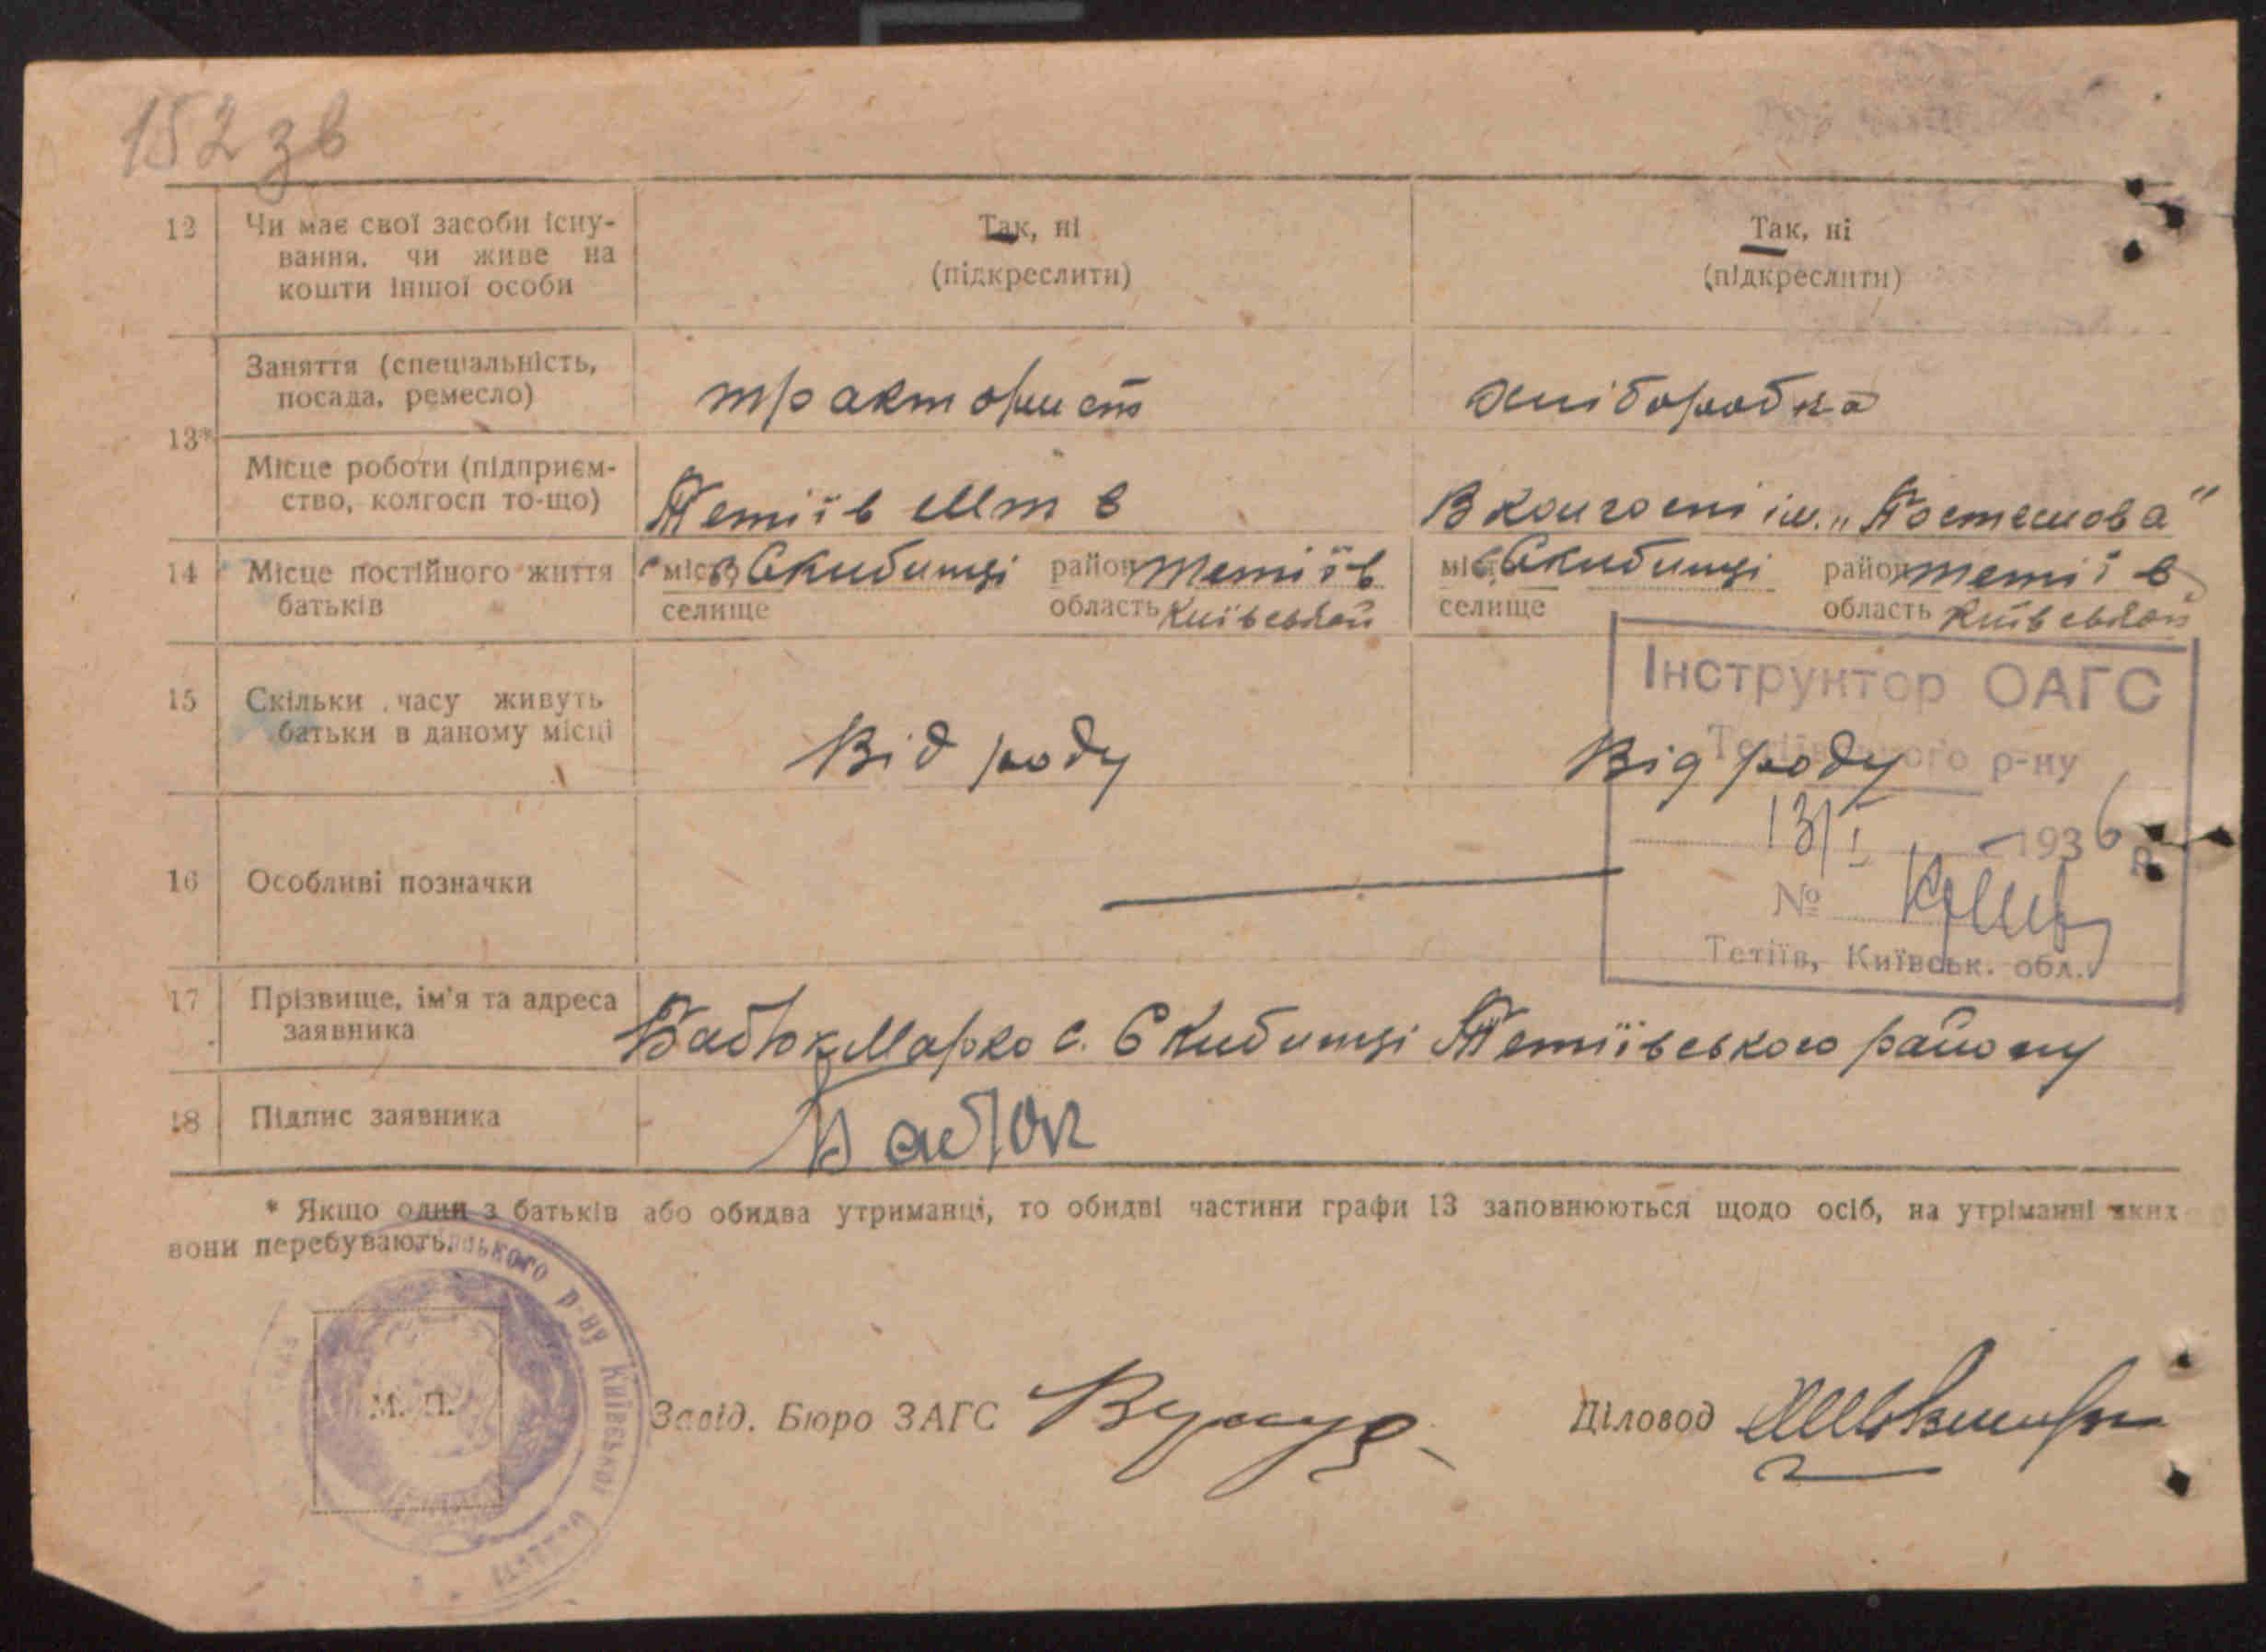 152 зв
12 Чи має свої засоби існу- Так, ні Так, ні
вання, чи живе на (підкреслити) (підкреслити)
кошти іншої особи
Заняття (спеціальність, тракторист хліборобка
посада, ремесло)
13*
Місце роботи (підприєм- Тетіїв В колгоспі ім. „Постешова"
ство, колгосп то-що)
14 Місце постійного життя місто Скибинці район Тетіїв місто Скибинці район Тетіїв
батьків селище область Київської селище область Київської
Інструктор ОАГС
15 Скільки часу живуть Від роду Від роду
батьки в даному місці
р-ну
13/I 1936 р.
16 Особливі позначки
№
Тетіїв, Київськ. обл.
17 Прізвище, ім'я та адреса Бабюк Марко с. Скибинці Тетіївського району
заявника
18 Підпис заявника Бабюк
* Якщо один з батьків або обидва утриманці, то обидві частини графи 13 заповнюються щодо осіб, на утріманні яких
вони перебувають.
ського р-ну Київської області
М. П.
Завід. Бюро ЗАГС Діловод